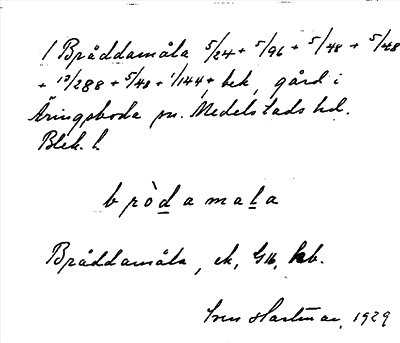 1 Bråddamåla 5/24 + 5/96 + 5/48 + 5/48
+ 13/288 + 5/48 + 1/144, bek, gård i
Äringsboda sn. Medelstads hd.
Blek. l.
bròdamala
Bråddamåla, ek, Gtb, hb.
Sven Hartman, 1929